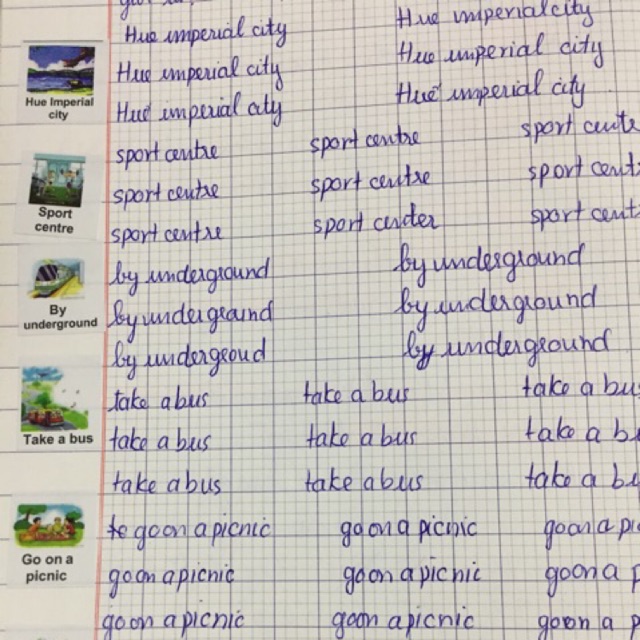 Hue imperial city Hue imperial city
Hue imperial city Hue imperial city
Hue imperial city Hue imperial city
Hue Imperial
city
sport centre sport centre sport centre
sport centre sport centre sport cent
sport centre sport center sport cent
Sport
centre
by underground by underground
by undergeaund by underground
by undergeoud by underground
By
underground
take a bus take a bus take a bus
take a bus take a bus take a b
take a bus take a bus take a bu
Take a bus
to go on a picnic go on a picnic go on a pi
go on a picnic go on a picnic go on a p
go on a picnic go on a picnic go on a p
Go on a
picnic